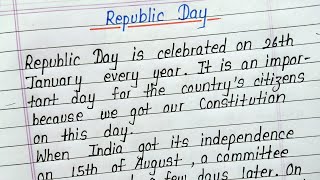 Republic Day
Republic Day is celebrated on 26th
January every year. It is an impor-
tant day for the country's citizens
because we got our Constitution
on this day.
When India got its independence
on 15th of August, a committee
a few days later. On